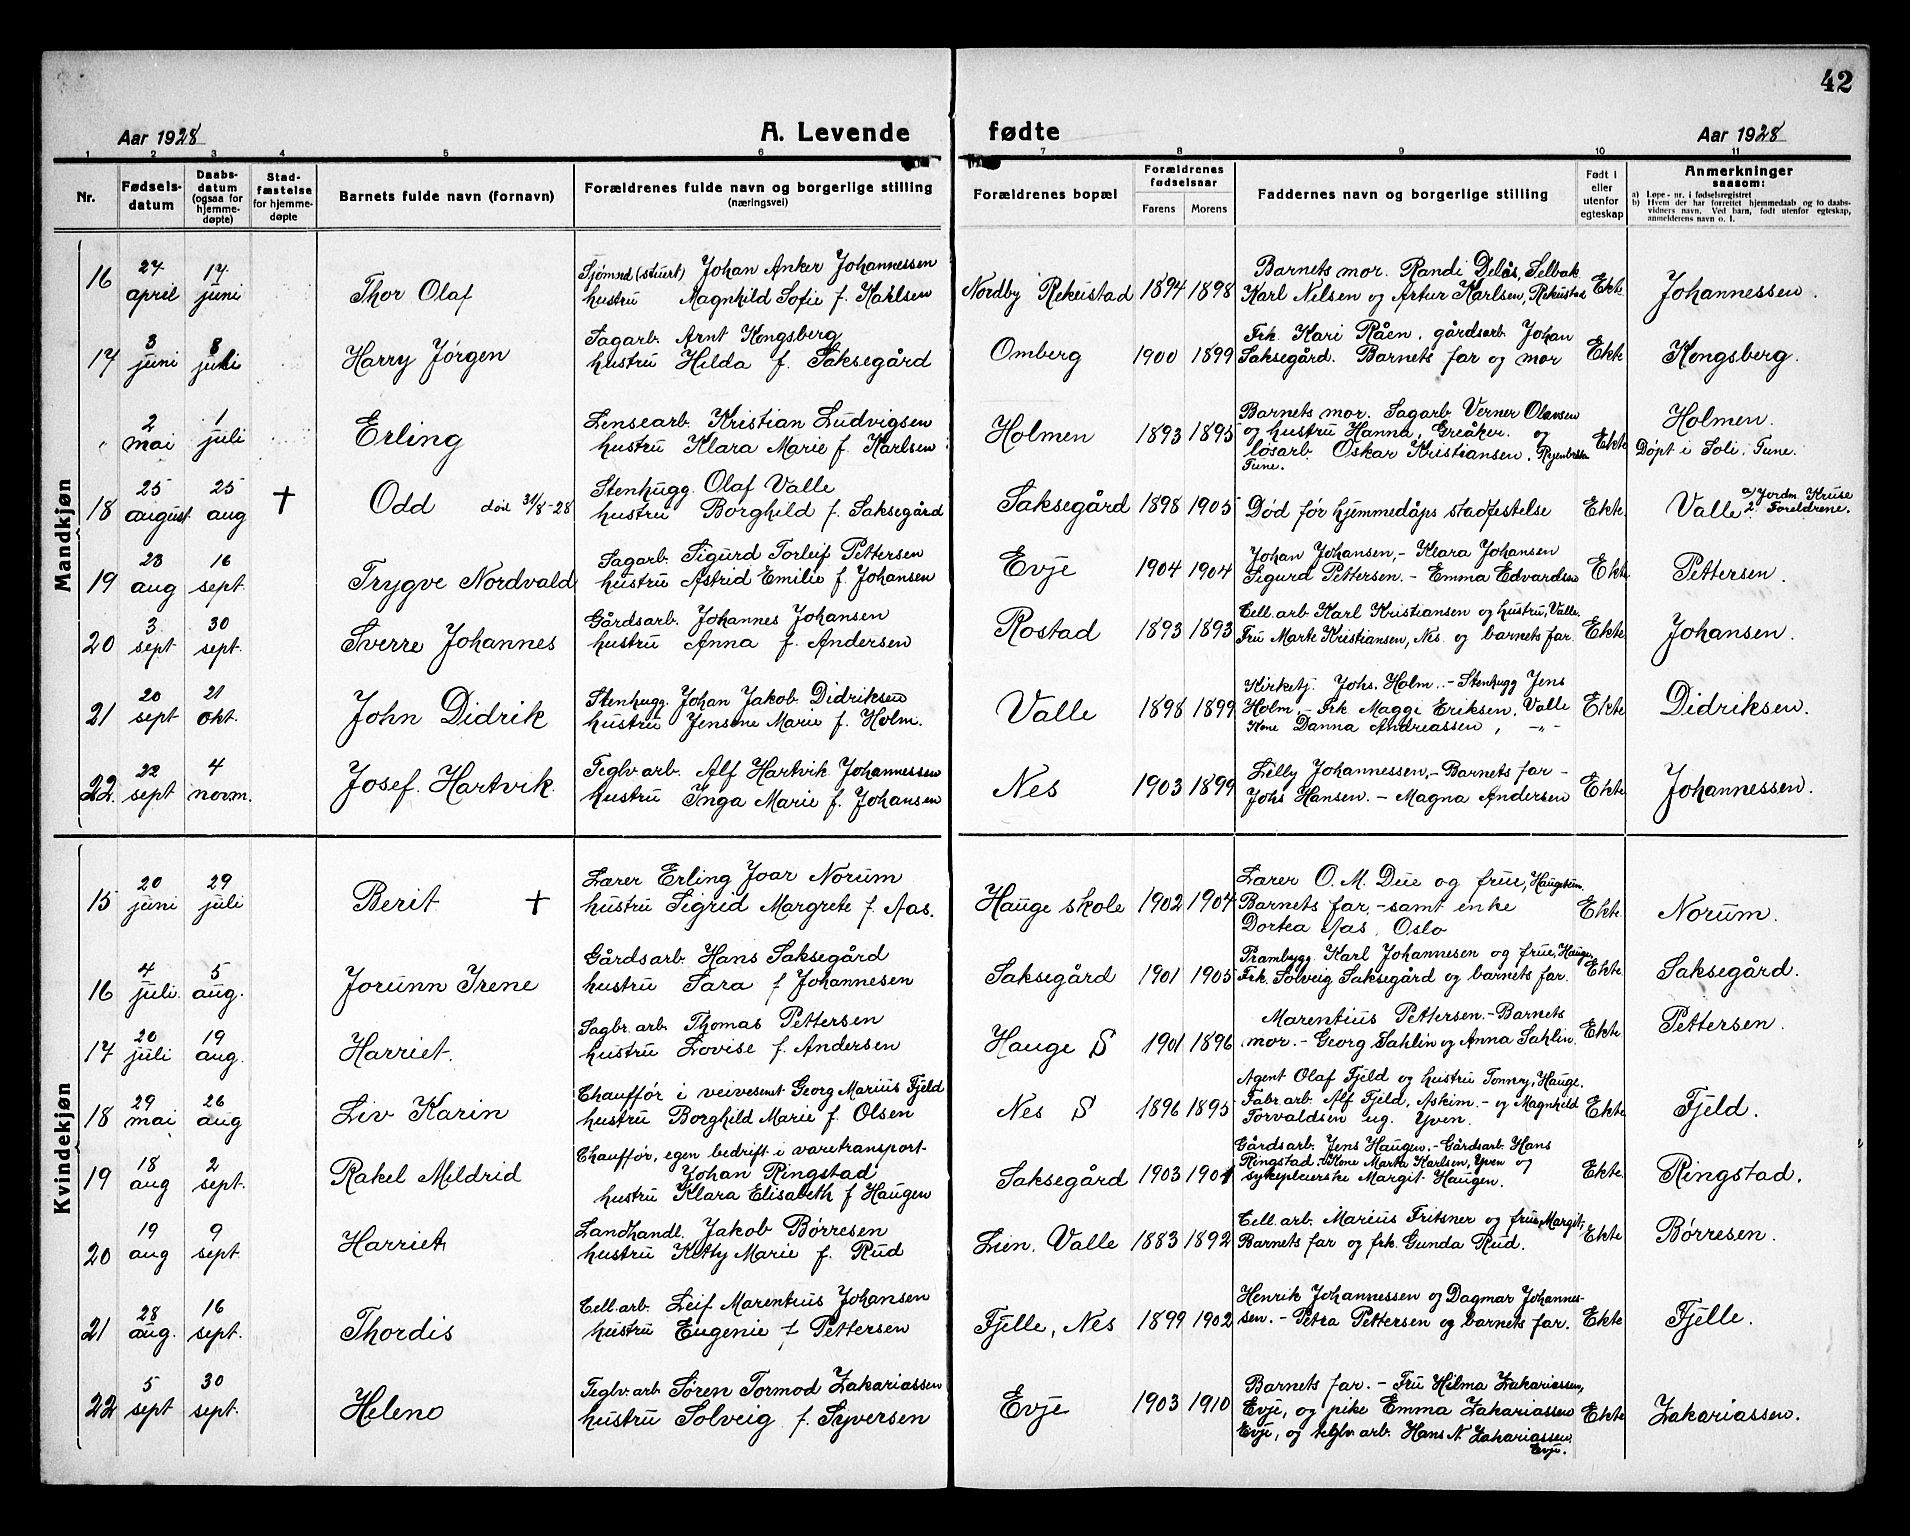 42
Aar 1928 A. Levende fødte Aar 1928
1 2 3 4 5 6 7 8 9 10 11
Nr. Fødsels-datum Daabs-datum (ogsaa for hjemme-døpte) Stad-fæstelse for hjemme-døpte Barnets fulde navn (fornavn) Forældrenes fulde navn og borgerlige stilling (næringsvei) Forældrenes bopæl Forældrenes fødselsaar Farens Morens Faddernes navn og borgerlige stilling Født i eller utenfor egteskap Anmerkninger saasom:
a) Løpe-nr. i fødselsregistret
b) Hvem der har forrettet hjemmedaab og to daabs-
vidners navn. Ved barn, født utenfor egteskap,
anmelderens navn o. l.
Mandkjøn
16 27 april 17 juni Thor Olaf Sjømnd (stuert) Johan Anker Johannessen
hustru Magnhild Sofie f. Karlsen Nordby Rekustad 1894 1898 Barnets mor. Randi Delås, Selbak
Karl Nilsen og Artur Karlsen, Rekustad Ekte Johannessen.
17 3 juni 8 juli Harry Jørgen Sagarb. Arnt Kongsberg
hustru Hilda f. Saksegård Omberg 1900 1899 Frk. Kari Råen, gårdsarb. Johan
Saksegård. Barnets far og mor Ekte Kongsberg.
2 mai 1 juli Erling Lensearb. Kristian Ludvigsen
hustru Klara Marie f. Karlsen Holmen 1893 1895 Barnets mor. Sagarb. Verner Olavsen
og hustru Hanna, Greåker. og
løsarb. Oskar Kristiansen,
Tune. Ekte Holmen.
Døpt i Soli, Tune.
18 25 august 25 aug † Odd død 31/8-28 Stenhugg. Olaf Valle
hustru Borghild f. Saksegård Saksegård 1898 1905 Død før hjemmedåps stadfestelse Ekte Valle 1) Jordm. Kruse
2 Foreldrene.
19 23 aug 16 sept. Trygve Nordvald Sagarb. Sigurd Torleif Pettersen
hustru Astrid Emilie f. Johansen Evje 1904 1904 Johan Johansen, - Klara Johansen
Sigurd Pettersen. - Emma Edvardsen Ekte Pettersen.
20 3 sept 30 sept. Sverre Johannes Gårdsarb. Johannes Johansen
hustru Anna f. Andersen Rostad 1893 1893 Cell.arb. Karl Kristiansen og hustru, Valle.
Fru Marte Kristiansen, Nes. og barnets far. Ekte Johansen.
21 20 sept 21 okt. John Didrik Stenhugg. Johan Jakob Didriksen
hustru Jensene Marie f. Holm. Valle 1898 1899 Kirketj. Johs. Holm. - Stenhugg Jens
Holm, - Frk Maggi Eriksen, Valle
Kone Danna Andreassen, -„- Ekte Didriksen.
22 22 sept 4 novm. Josef Hartvik. Teglv.arb. Alf Hartvik Johannessen
hustru Inga Marie f. Johansen Nes 1903 1899 Lilly Johannessen, - Barnets far -
Johs Hansen. - Magna Andersen Ekte Johannessen.
Kvindekjøn
15 20 juni 29 juli Berit † Lærer Erling Joar Norum
hustru Sigrid Margrete f. Aas. Hauge skole 1902 1904 Lærer O. M. Due og frue,
Barnets far, - samt enke
Dortea Aas, Oslo Ekte. Norum.
16 4 juli. 5 aug. Jorunn Irene Gårdsarb. Hans Saksegård
hustru Sara f Johannesen Saksegård 1901 1905 Prambygg. Karl Johannesen og frue, Hauge,
Frk. Solveig Saksegård og barnets far. Ekte Saksegård.
17 20 juli 19 aug. Harriet. Sagbr.arb. Thomas Pettersen
hustru Lovise f. Andersen Hauge S 1901 1896 Marentius Pettersen. - Barnets
mor. - Georg Sahlin og Anna Sahlin. Ekte Pettersen.
18 29 mai 26 aug Liv Karin Chauffør i veivesent Georg Marius Fjeld
hustru Borghild Marie f. Olsen Nes S 1896 1895 Agent Olaf Fjeld og hustru Tonny, Hauge.
Fabr.arb. Alf Fjeld, Askim. - og Magnhild
Torvaldsen ug. Yven. Ekte Fjeld.
19 18 aug 2 sept. Rakel Mildrid Chauffør, egen bedrift i varetransport
Johan Ringstad
hustru Klara Elisabeth f Haugen Saksegård 1903 1901 Gårdsarb. Jens Haugen. - Gårdsarb. Hans
Ringstad. Kone Marta Karlsen, Yven og
sykepleierske Margit Haugen. Ekte. Ringstad.
20 19 aug 9 sept. Harriet Landhandl. Jakob Børresen
hustru Kitty Marie f. Rud Lien, Valle 1883 1892 Cell.arb. Marius Fritsner og frue, Margit,
Barnets far og frk. Gunda Rud. Ekte Børresen.
21 28 aug. 16 sept. Thordis Cell.arb. Leif Marentius Johansen
hustru Eugenie f Pettersen Fjelle, Nes 1899 1902 Henrik Johannessen og Dagmar Johannes-
sen. - Petra Pettersen og barnets far. Ekte Fjelle.
22 5 sept 30 sept. Helene Teglv.arb. Søren Tormod Zakariassen
hustru Solveig f. Syversen Evje 1903 1910 Barnets far. - Fru Hilma Zakariassen,
Evje, og pike Emma Zakariassen
Evje, og teglv.arb. Hans N. Zakariassen,
Evje. Ekte Zakariassen.